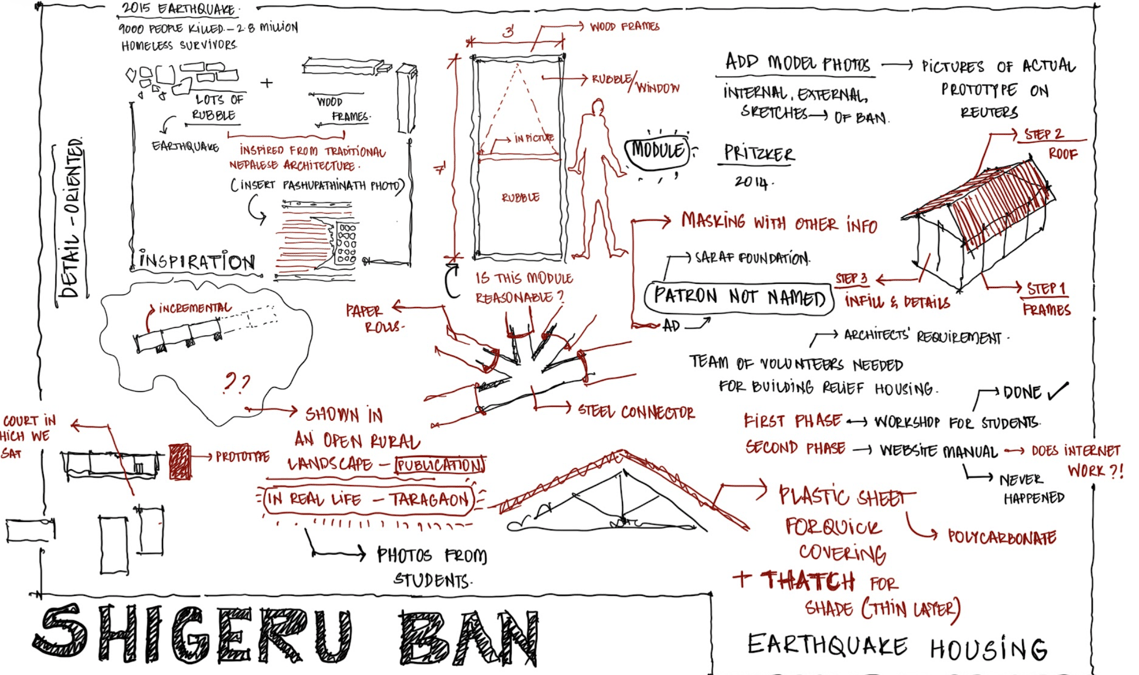 2015 EARTHQUAKE.
9000 PEOPLE KILLED - 2.8 MILLION
HOMELESS SURVIVORS
+
LOTS OF
RUBBLE
EARTHQUAKE
WOOD
FRAMES.
INSPIRED FROM TRADITIONAL
NEPALESE ARCHITECTURE.
(INSERT PASHUPATHINATH PHOTO)
INSPIRATION
DETAIL-ORIENTED
3'
WOOD FRAMES
RUBBLE/WINDOW
IN PICTURE
7'
RUBBLE
MODULE
IS THIS MODULE
REASONABLE?
ADD MODEL PHOTOS
PICTURES OF ACTUAL
PROTOTYPE ON
REUTERS
INTERNAL, EXTERNAL,
SKETCHES → OF BAN.
PRITZKER
2014.
STEP 2
ROOF
MASKING WITH OTHER INFO
SARAF FOUNDATION.
PATRON NOT NAMED
AD
STEP 3
INFILL & DETAILS
STEP 1
FRAMES
ARCHITECTS' REQUIREMENT.
TEAM OF VOLUNTEERS NEEDED
FOR BUILDING RELIEF HOUSING.
DONE ✓
FIRST PHASE ↔ WORKSHOP FOR STUDENTS.
SECOND PHASE → WEBSITE MANUAL → DOES INTERNET
WORK?!
NEVER
HAPPENED
INCREMENTAL
??
PAPER
ROLLS.
STEEL CONNECTOR
SHOWN IN
AN OPEN RURAL
LANDSCAPE - PUBLICATION
IN REAL LIFE - TARAGAON
PHOTOS FROM
STUDENTS.
COURT IN
HICH WE
SAT
PROTOTYPE
PLASTIC SHEET
FOR QUICK
COVERING
POLYCARBONATE
+ THATCH FOR
SHADE (THIN LAYER)
SHIGERU BAN
EARTHQUAKE HOUSING